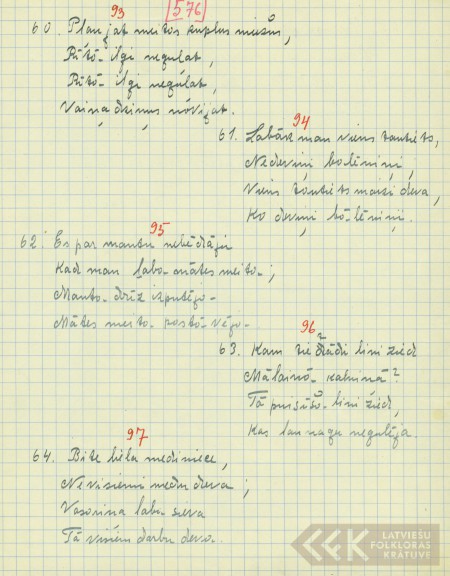 93 [576]
60. Plaujat meitas kuplus miežus,
Rītā- ilgi negulat,
Rītā- ilgi negulat,
Vaiņadziņus nōvijat.
94
61. Labāk man viens tautiets,
Nedeviņi bolēniņi,
Viens tautiets maizi deva,
Ko deviņi bō-lēniņi.
95
62. Es par mantu nebēdāju
Kad man laba- mātes meita-;
Manta- drīz izputēja-
Mātes meita- pastā-vēja-
96
63. Kam tie tādi lini zied
Mālainā- kalniņā?
Tā puisīša- lini zied,
Kas launagu negulēja.
97
64. Bite liela medīniece,
Ne visiemi medu deva;
Vasariņa laba sieva
Tā visiem darbu deva.
LATVIEŠU
FOLKLORAS
KRĀTUVE